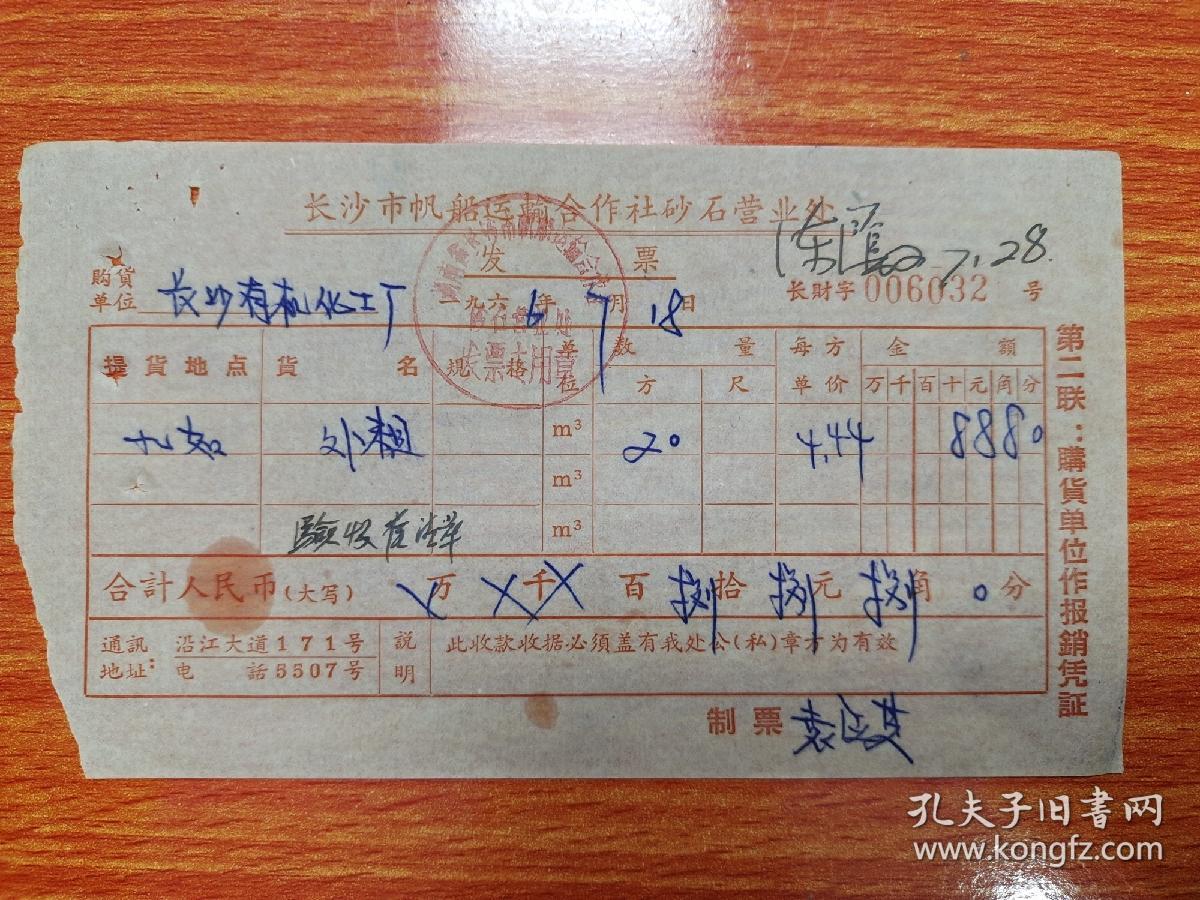 长沙市帆船运输合作社砂石营业处
发票
7.28.
購貨单位 长沙有机化工厂 一九六6年7月18日 长財字 006032 号
提貨地点 貨名 規格 单位 数量 每方单价 金額
方 尺 万 千 百 十 元 角 分
九如 外粗 m³ 20 4.44 8880
m³
驗收 m³
合計人民币(大写) ×万×千×百捌拾捌元捌角0分
通訊地址: 沿江大道171号 電話5507号 説明 此收款收据必須盖有我处公(私)章方为有效
制票
第二联:購貨单位作报銷凭証
发票专用章
孔夫子旧书网
www.kongfz.com